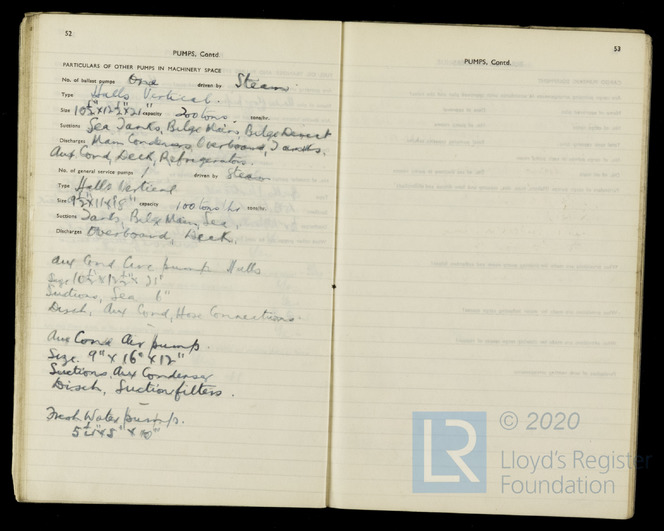 52
PUMPS, Contd.
PARTICULARS OF OTHER PUMPS IN MACHINERY SPACE
No. of ballast pumps One driven by Steam.
Type Halls Vertical.
Size 10½" x 12½" x 21" capacity 200 tons. tons/hr.
Suctions Sea, Tanks, Bilge Main, Bilge Direct
Discharges Main Condenser, Overboard, Tanks,
Aux Cond, Deck, Refrigerator.
No. of general service pumps 1 driven by Steam
Type Halls Vertical
Size 9½" x 11" x 18" capacity 100 tons/hr tons/hr.
Suctions Tanks, Bilge Main, Sea,
Discharges Overboard, Deck.
Aux Cond Circ pump Halls
Size 10½" x 12½" x 21"
Suctions, Sea 6"
Disch, Aux Cond, Hose Connections.
Aux Cond Air pump.
Size. 9" x 16" x 12"
Suctions. Aux Condenser
Disch, Suction filters.
Fresh Water pump.
5½" x 5" x 10"
53
PUMPS, Contd.
LR
© 2020
Lloyd's Register
Foundation